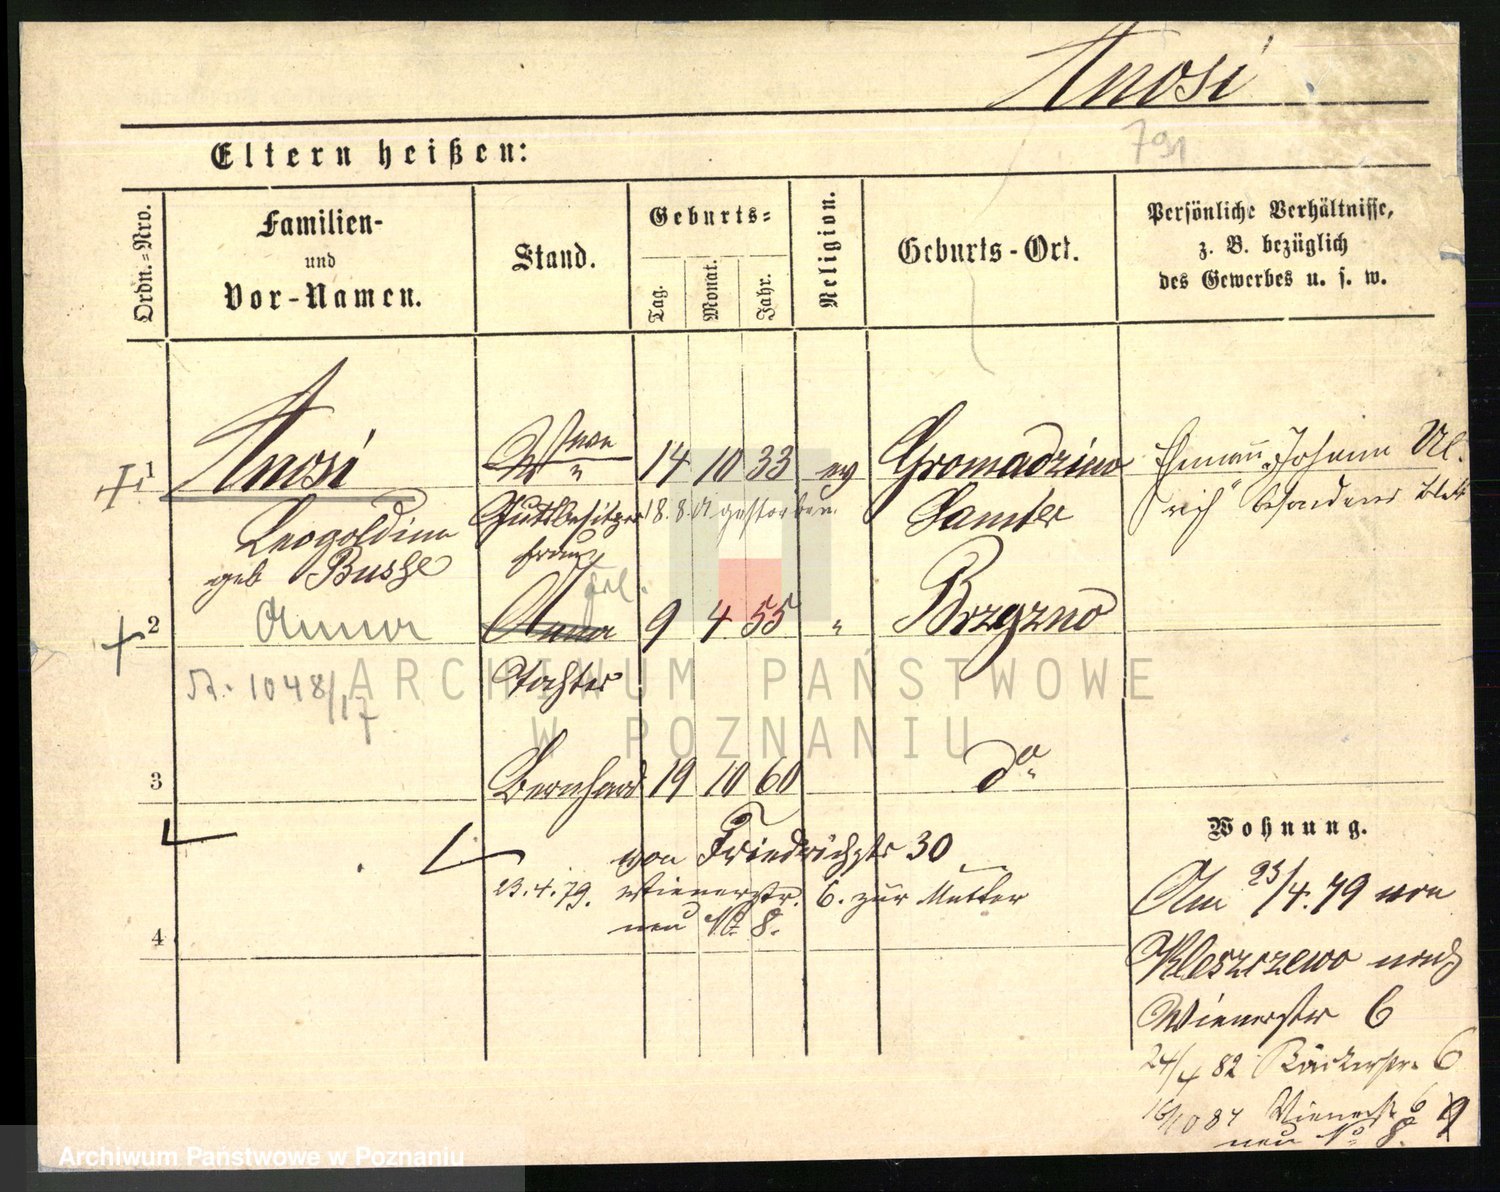 Knosi
791
Eltern heißen:
Ordn.-Nro.
Familien-
und
Vor-Namen.
Stand.
Geburts-
Tag.
Monat.
Jahr.
Religion.
Geburts-Ort.
Persönliche Verhältnisse,
z. B. bezüglich
des Gewerbes u. s. w.
1 Knosi 14 10 33 ev Gromadzino Ehemann „Johann Ul-
Leopoldine Gutsbesitzer gestorben. Samter rich" besonderes Blatt
geb Busse frau
frl.
2 Anna Anna 9 4 55 " Brzezno
1048/17 Tochter
3 Bernhard 19 10 60 do
von Friedrichstr 30
23.4.79. Wienerstr. 6. zur Mutter
neu No 8.
4
Wohnung.
Am 23/4.79 von
Kleszczewo nach
Wienerstr 6
24/4 82 Bäckerstr. 6
16/10 84 Wienerstr 6
neu No 8.
ARCHIWUM PAŃSTWOWE
W POZNANIU
Archiwum Panstwowe w Poznaniu